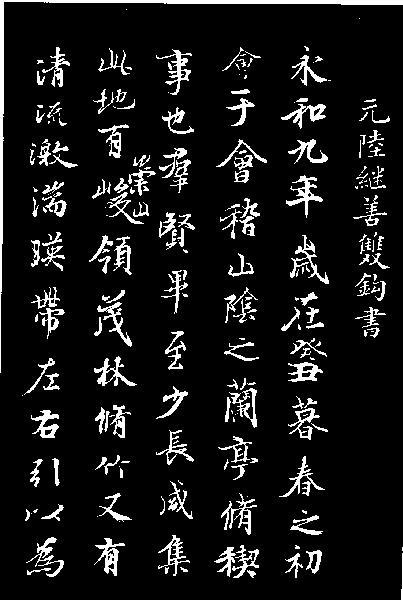 元陸継善雙鈎書
永和九年歲在癸丑暮春之初
會于會稽山陰之蘭亭脩稧
事也羣賢畢至少長咸集
此地有崇山峻領茂林脩竹又有
清流激湍暎帶左右引以為